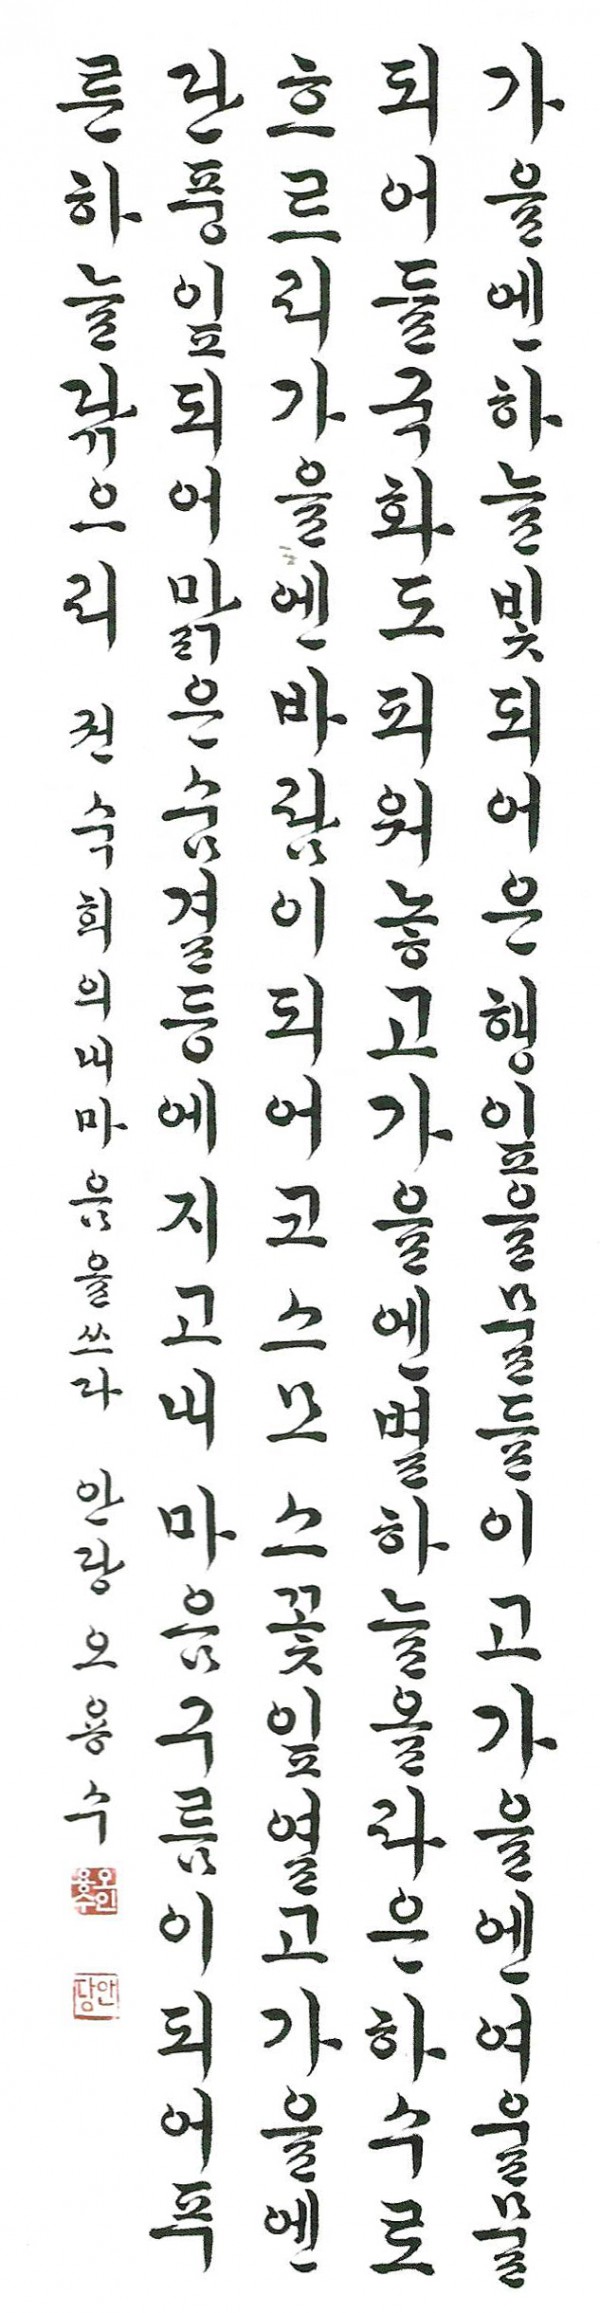 가을엔하늘빛되어은행잎을물들이고가을엔여울물
되어들국화도피워놓고가을엔별하늘올라은하수로
흐르리가을엔바람이되어코스모스꽃잎열고가을엔
단풍잎되어맑은숨결등에지고내마음구름이되어푸
른하늘닦으리 권숙희의내마음을쓰다 안당오용수
오인용수
안당